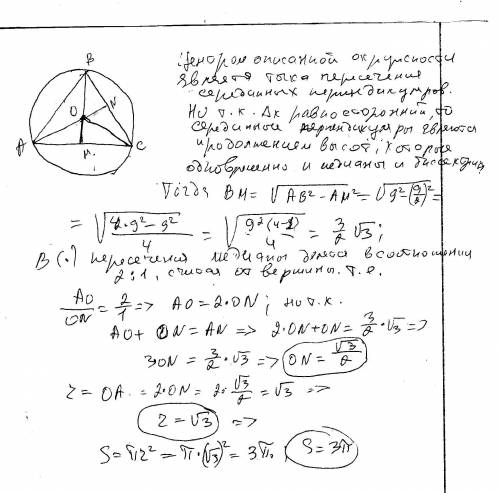 B
O
N
A
M
C
Центром описанной окружности
является точка пересечения
серединных перпендикуляров.
Но т.к. Δк равносторонний, то
серединные перпендикуляры являются
продолжением высот, которые
одновременно и медианы и биссектрисы
Тогда BM = √(AB² - AM²) = √(9² - (9/2)²) =
= √((4·9² - 9²)/4) = √(9²(4-1)/4) = 3/2 √3;
В (·) пересечения медианы делятся в соотношении
2:1, считая от вершины. т.е.
AO/ON = 2/1 => AO = 2·ON; но т.к.
AO + ON = AN => 2·ON + ON = 3/2·√3 =>
3ON = 3/2·√3 => ON = √3/2
r = OA = 2·ON = 2·√3/2 = √3 =>
r = √3 =>
S = πr² = π·(√3)² = 3π. S = 3π